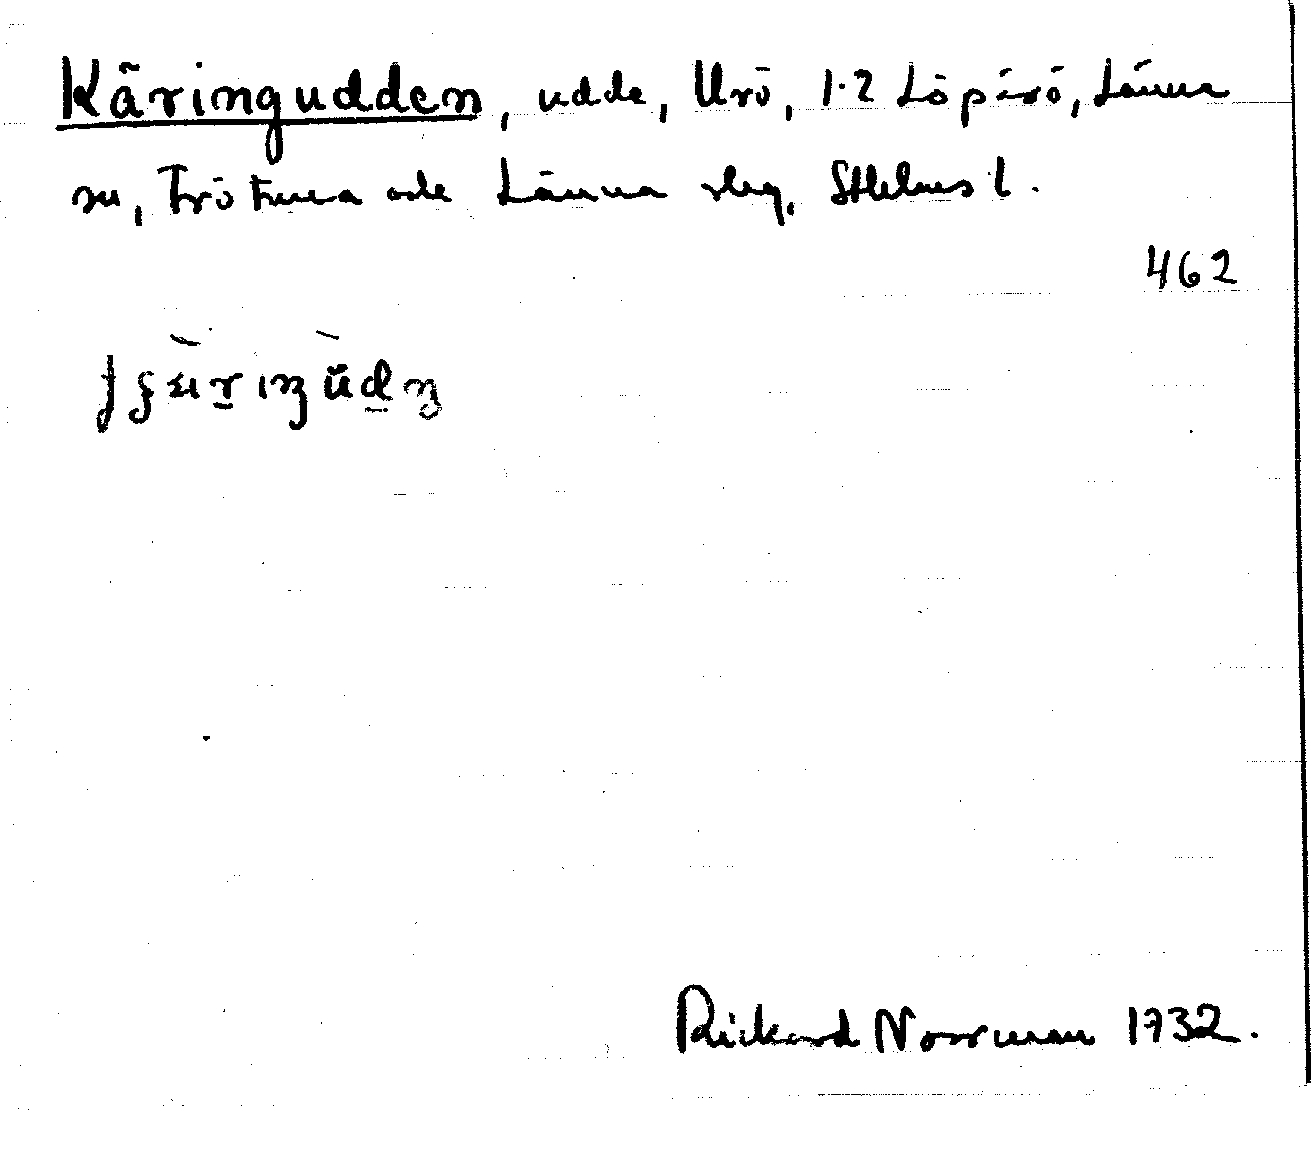 Käringudden, udde, Urö, 1.2 Löparö, Länna
sn, Frötuna och Länna slag, Sthlms l.
462
Rickard Norrman 1932.